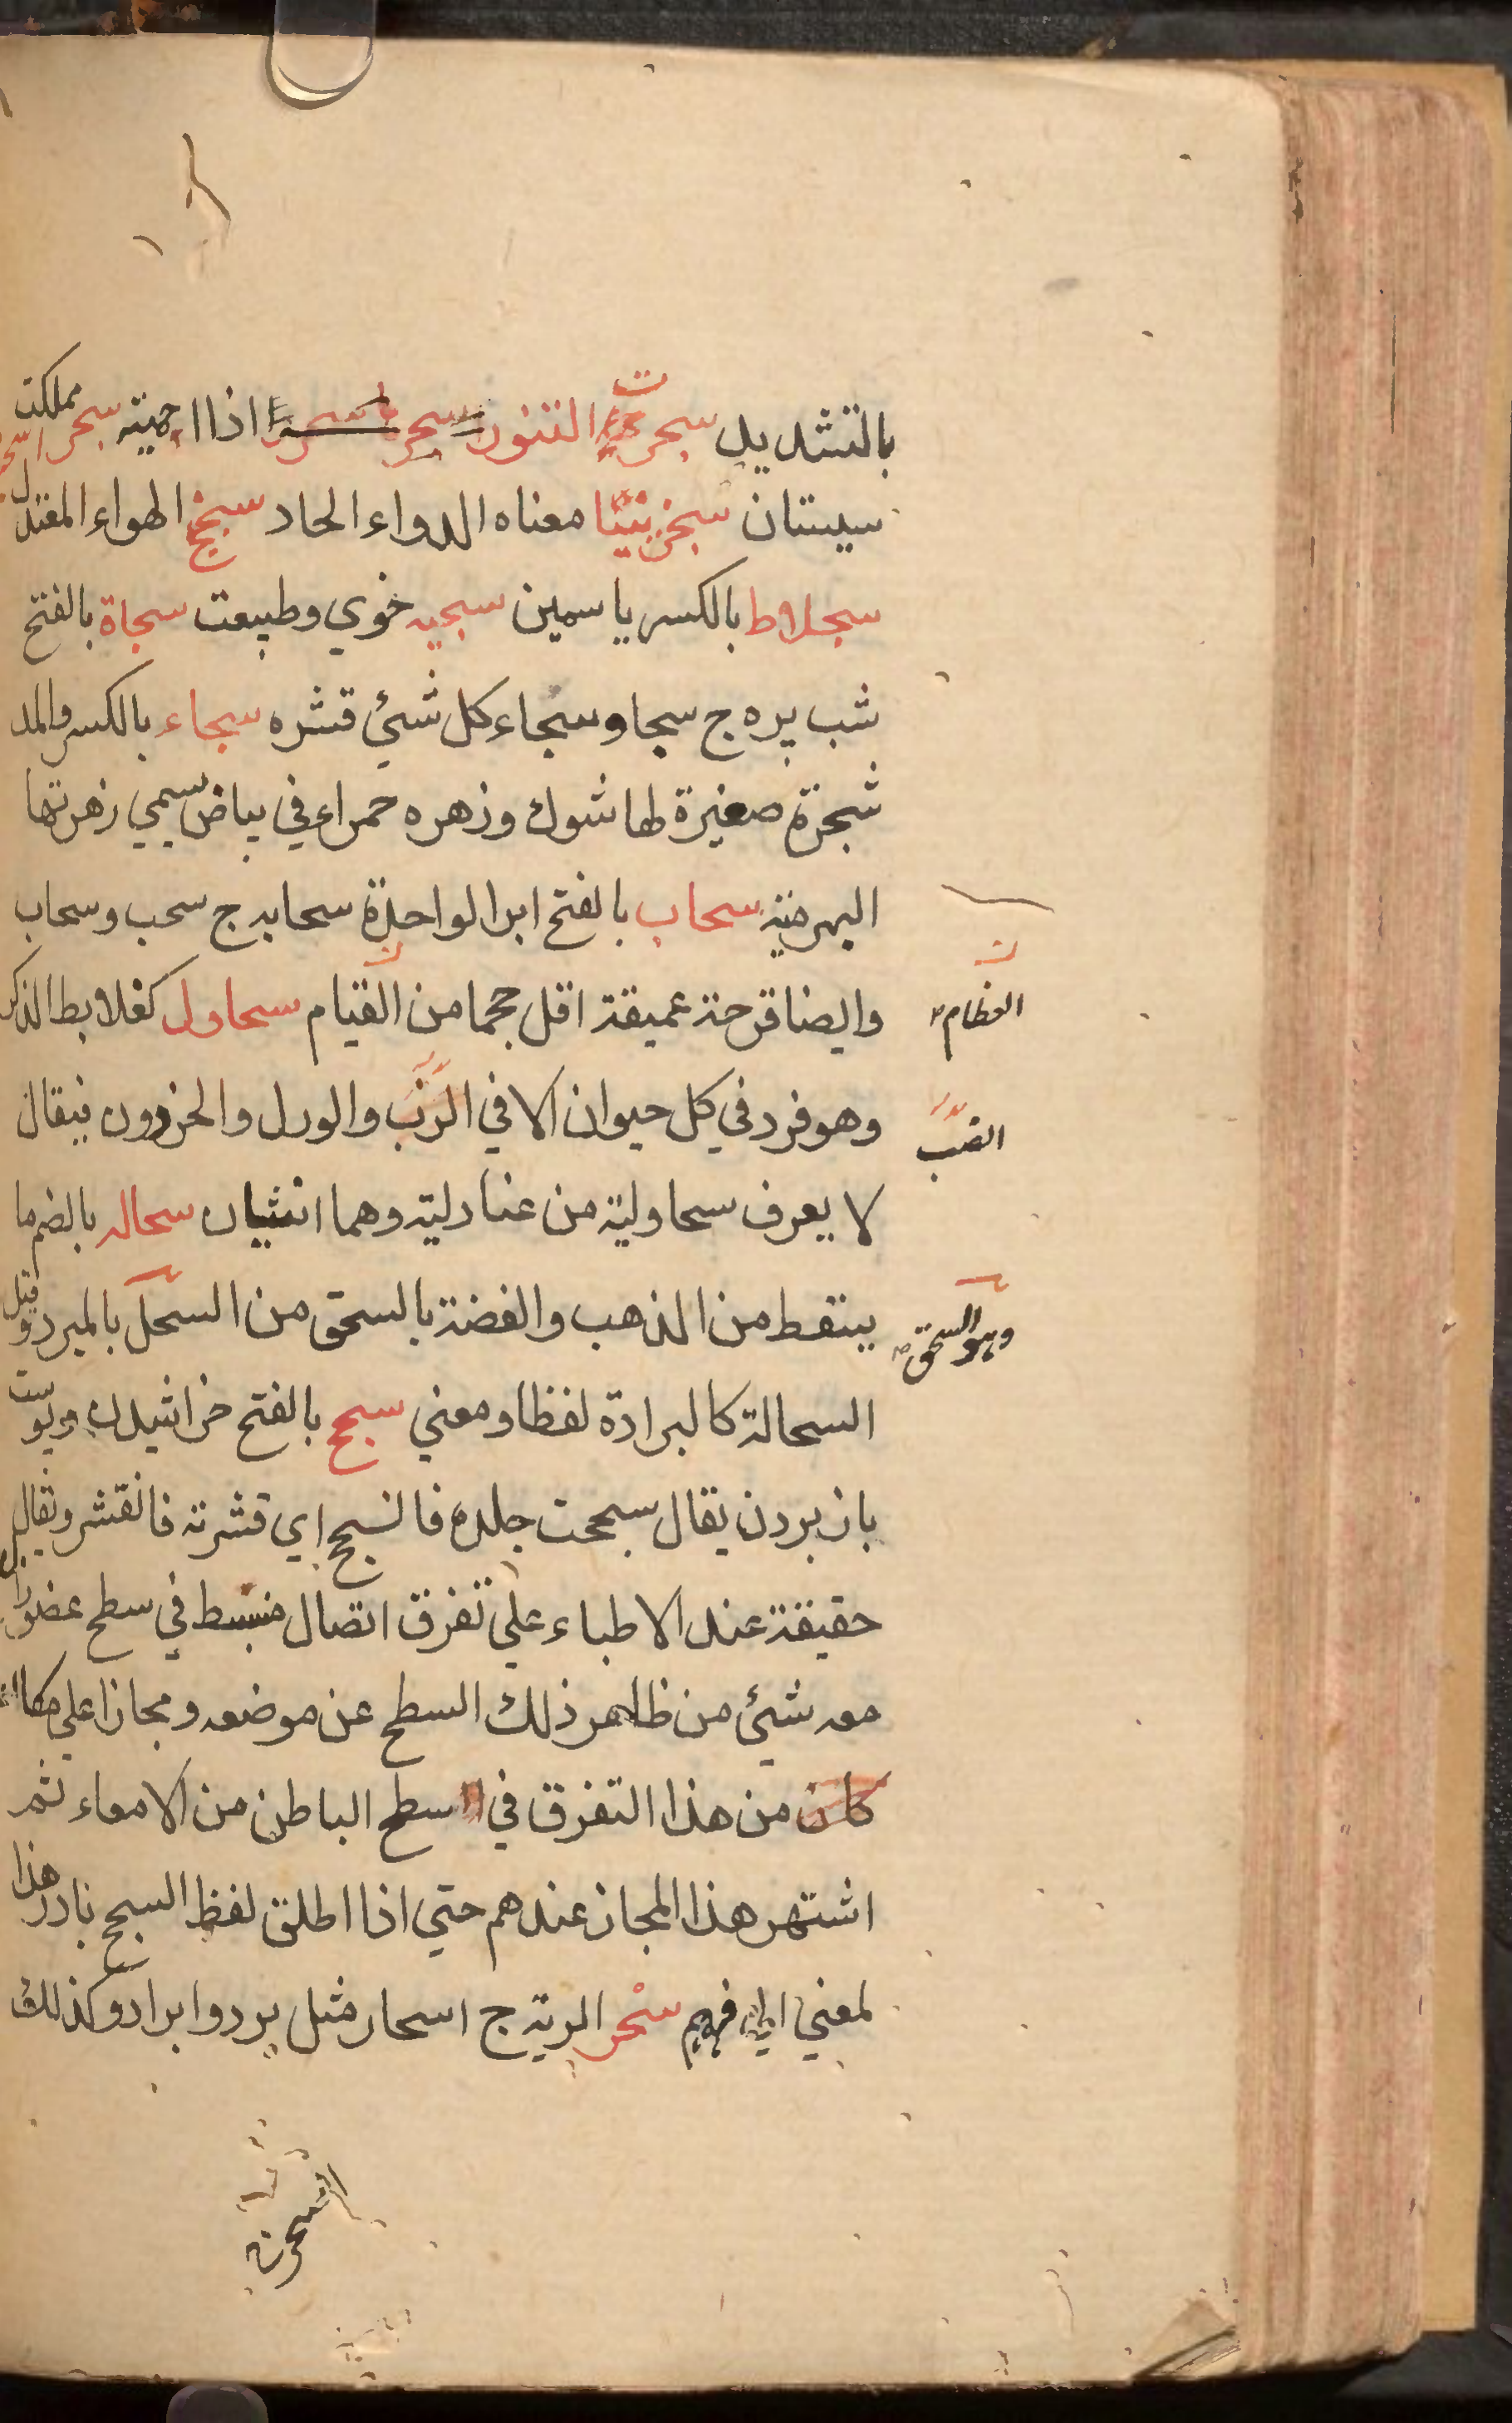 بالتشديد سجرت التنور سجر اذا احميته سجر مملكت
سيستان سجزنيثا معناه الدواء الحاد سجسج الهواء المعتدل
سجلاط بالكسر ياسمين سجيه خوي وطبيعت سحاة بالفتح
شب پره ج سحا وسحاء كل شئ قشره سحاء بالكسر والمد
شجرة صغيرة لها شوك وزهره حمراء في بياض سمي زهرتها
البهرمة سحاب بالفتح ابر الواحدة سحابه ج سحب وسحاب
وايضا قرحة عميقة اقل حجما من القيام سحاول كعلابط الذكر
العظام
وهو فرد في كل حيوان الا في الزنب والورل والحرذون فيقال
الضب
لا يعرف سحاوليه من عنادليه وهما انثيان سحاله بالضم ما
يسقط من الذهب والفضة بالسحق من السحل بالمبرد وقيل
وهو السحق
السحالة كالبرادة لفظا ومعني سحج بالفتح خراشيدن وپوست
باز بردن يقال سحجت جلده فانسحج اي قشرته فانقشر ويقال
حقيقة عند الاطباء علي تفرق اتصال منبسط في سطح عضو
معه شئ من ظاهر ذلك السطح عن موضعه ومجازا علي
كان من هذا التفرق في سطح الباطن من الامعاء ثم
اشتهر هذا المجاز عندهم حتي اذا اطلق لفظ السحج بادر هذا
لمعني الي فهم سحر الرية ج اسحار مثل برد وابراد وكذلك
السحر